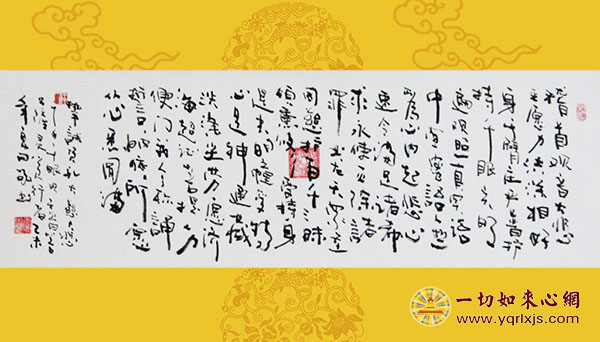 稽首观音大悲
主愿力洪深相好
身千臂庄严普护
持千眼光明
遍观照真实语
中宣密语无
为心内起悲心
速令满足诸希
求永使灭除诸
罪业天龙众圣
同慈护百千三昧
顿薰修受持身
是光明幢受持
心是神通藏
洗涤尘劳愿济
海超证菩提方
便门我今称诵
誓皈依所愿
从心悉圆满
千手千眼观世音
一切如来心網
www.yqrlxjs.com